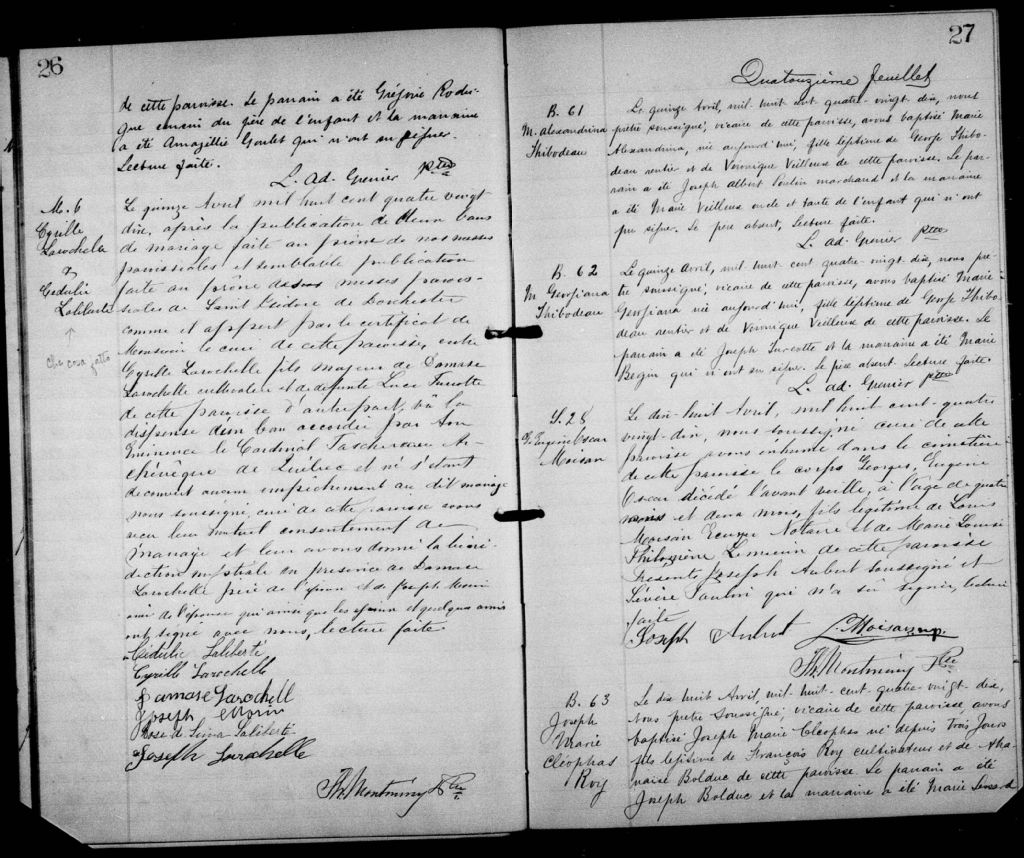 26
de cette paroisse. Le parrain a été Grégoire Rodri-
gue cousin du père de l'enfant et la marraine
a été Amazélie Goulet qui n'ont su signer.
Lecture faite.
L. Ad. Grenier ptre
M. 6
Cyrille
Larochelle
&
Cédulie
Laliberté
Le quinze Avril mil huit cent quatre vingt
dix, après la publication de deux bans
de mariage faite au prône de nos messes
paroissiales et semblable publication
faite au prône des messes parois-
siales de Saint Isidore de Dorchester
comme il appert par le certificat de
Monsieur le curé de cette paroisse, entre
Cyrille Larochelle fils majeur de Damase
Larochelle cultivateur et de défunte Luce Turcotte
de cette paroisse d'autre part, vû la
dispense d'un ban accordée par Son
Eminence le Cardinal Taschereau Ar-
chevêque de Québec et ne s'étant
découvert aucun empêchement au dit mariage
nous soussigné, curé de cette paroisse avons
reçu leur mutuel consentement de
mariage et leur avons donné la béné-
diction nuptiale en présence de Damase
Larochelle père de l'époux et de Joseph Morin
ami de l'épouse qui ainsi que les époux et quelques amis
ont signé avec nous, lecture faite.
Cédulie Laliberté
Cyrille Larochelle
Damase Larochell
Joseph Morin
Rose de Lima Laliberté
Joseph Larochelle
Th. Montminy Ptre
27
Quatorzième feuillet
B. 61
M. Alexandrina
Thibodeau
Le quinze Avril, mil huit cent quatre-vingt dix, nous
prêtre soussigné, vicaire de cette paroisse, avons baptisé Marie
Alexandrina, née aujourd'hui, fille légitime de George Thibo-
deau rentier et de Véronique Veilleux de cette paroisse. Le par-
rain a été Joseph Albert Poulin marchand et la marraine
a été Marie Veilleux oncle et tante de l'enfant qui n'ont
pu signer. Le père absent, Lecture faite.
L. Ad. Grenier ptre
B. 62
M Georgiana
Thibodeau
Le quinze Avril, mil huit cent quatre-vingt-dix, nous prê-
tre soussigné, vicaire de cette paroisse, avons baptisé Marie
Georgiana née aujourd'hui, fille légitime de George Thibo-
deau rentier et de Véronique Veilleux de cette paroisse. Le
parrain a été Joseph Turcotte et la marraine a été Marie
Bégin qui n'ont su signer. Le père absent. Lecture faite.
L. Ad. Grenier ptre
S. 28
G. Eugène Oscar
Moisan
Le dix-huit Avril, mil huit cent-quatre
vingt-dix, nous soussigné curé de cette
paroisse avons inhumé dans le cimetière
de cette paroisse le corps Georges, Eugène
Oscar décédé l'avant veille, à l'âge de quatre
et deux mois, fils légitime de Louis
Moisan Ecuyer Notaire et de Marie Louise
Philomène Lemieux de cette paroisse
Présents Joseph Aubert soussigné et
Sévère Paulin qui n'a su signer, lecture
faite
Joseph Aubut L. Moisan n.p.
Th. Montminy Ptre
B. 63
Joseph
Marie
Cléophas
Roy
Le dix huit Avril, mil-huit-cent-quatre-vingt-dix,
Nous prêtre soussigné, vicaire de cette paroisse, avons
baptisé Joseph Marie Cléophas né depuis trois jours
fils légitime de François Roy cultivateur et de Atha-
naise Bolduc de cette paroisse. Le parrain a été
Joseph Bolduc et la marraine a été Marie